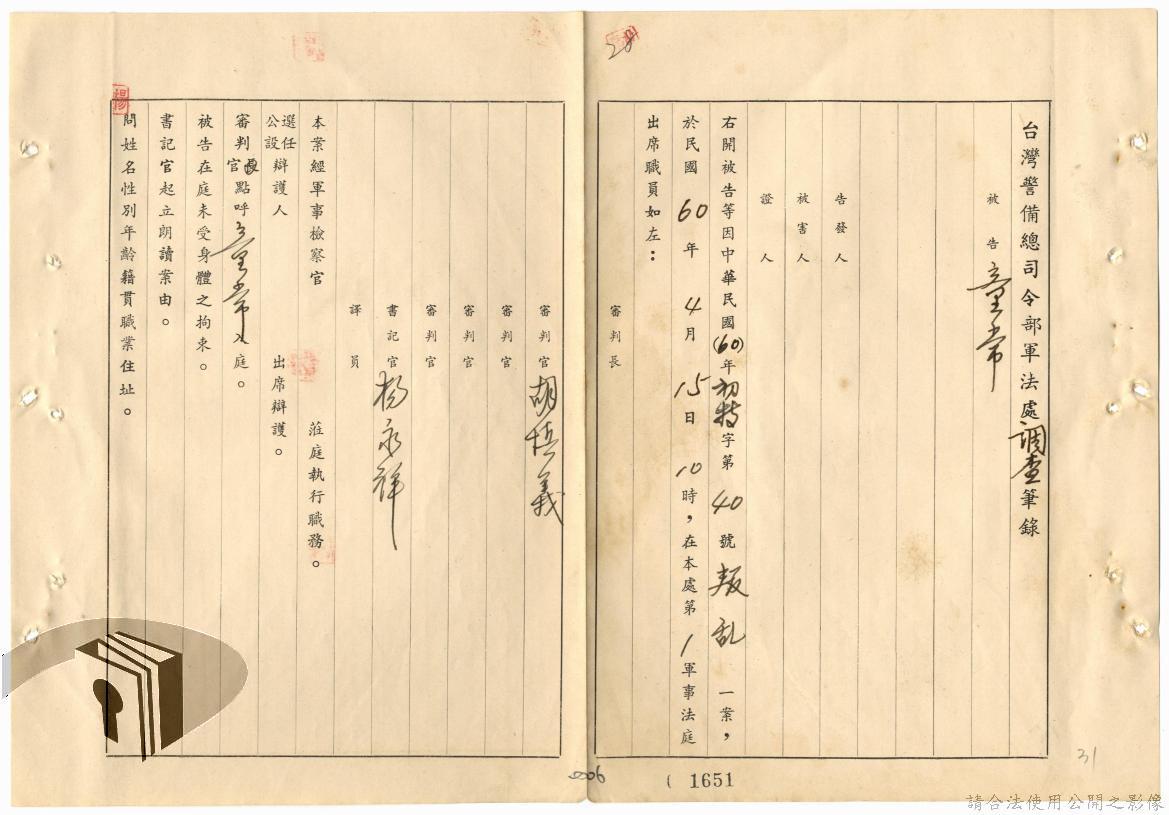 台灣警備總司令部軍法處調查筆錄
被告 童常
告發人
被害人
證人
右開被告等因中華民國(60)年初特字第40號叛乱一案,
於民國60年4月15日10時,在本處第1軍事法庭
出席職員如左:
審判長
審判官 胡慎義
審判官
審判官
審判官
書記官 楊永祥
譯員
本案經軍事檢察官 蒞庭執行職務。
選任
公設辯護人 出席辯護。
審判長
官點呼童常入庭。
被告在庭未受身體之拘束。
書記官起立朗讀案由。
問姓名性別年齡籍貫職業住址。
28
楊
006
1651
31
請合法使用公開之影像